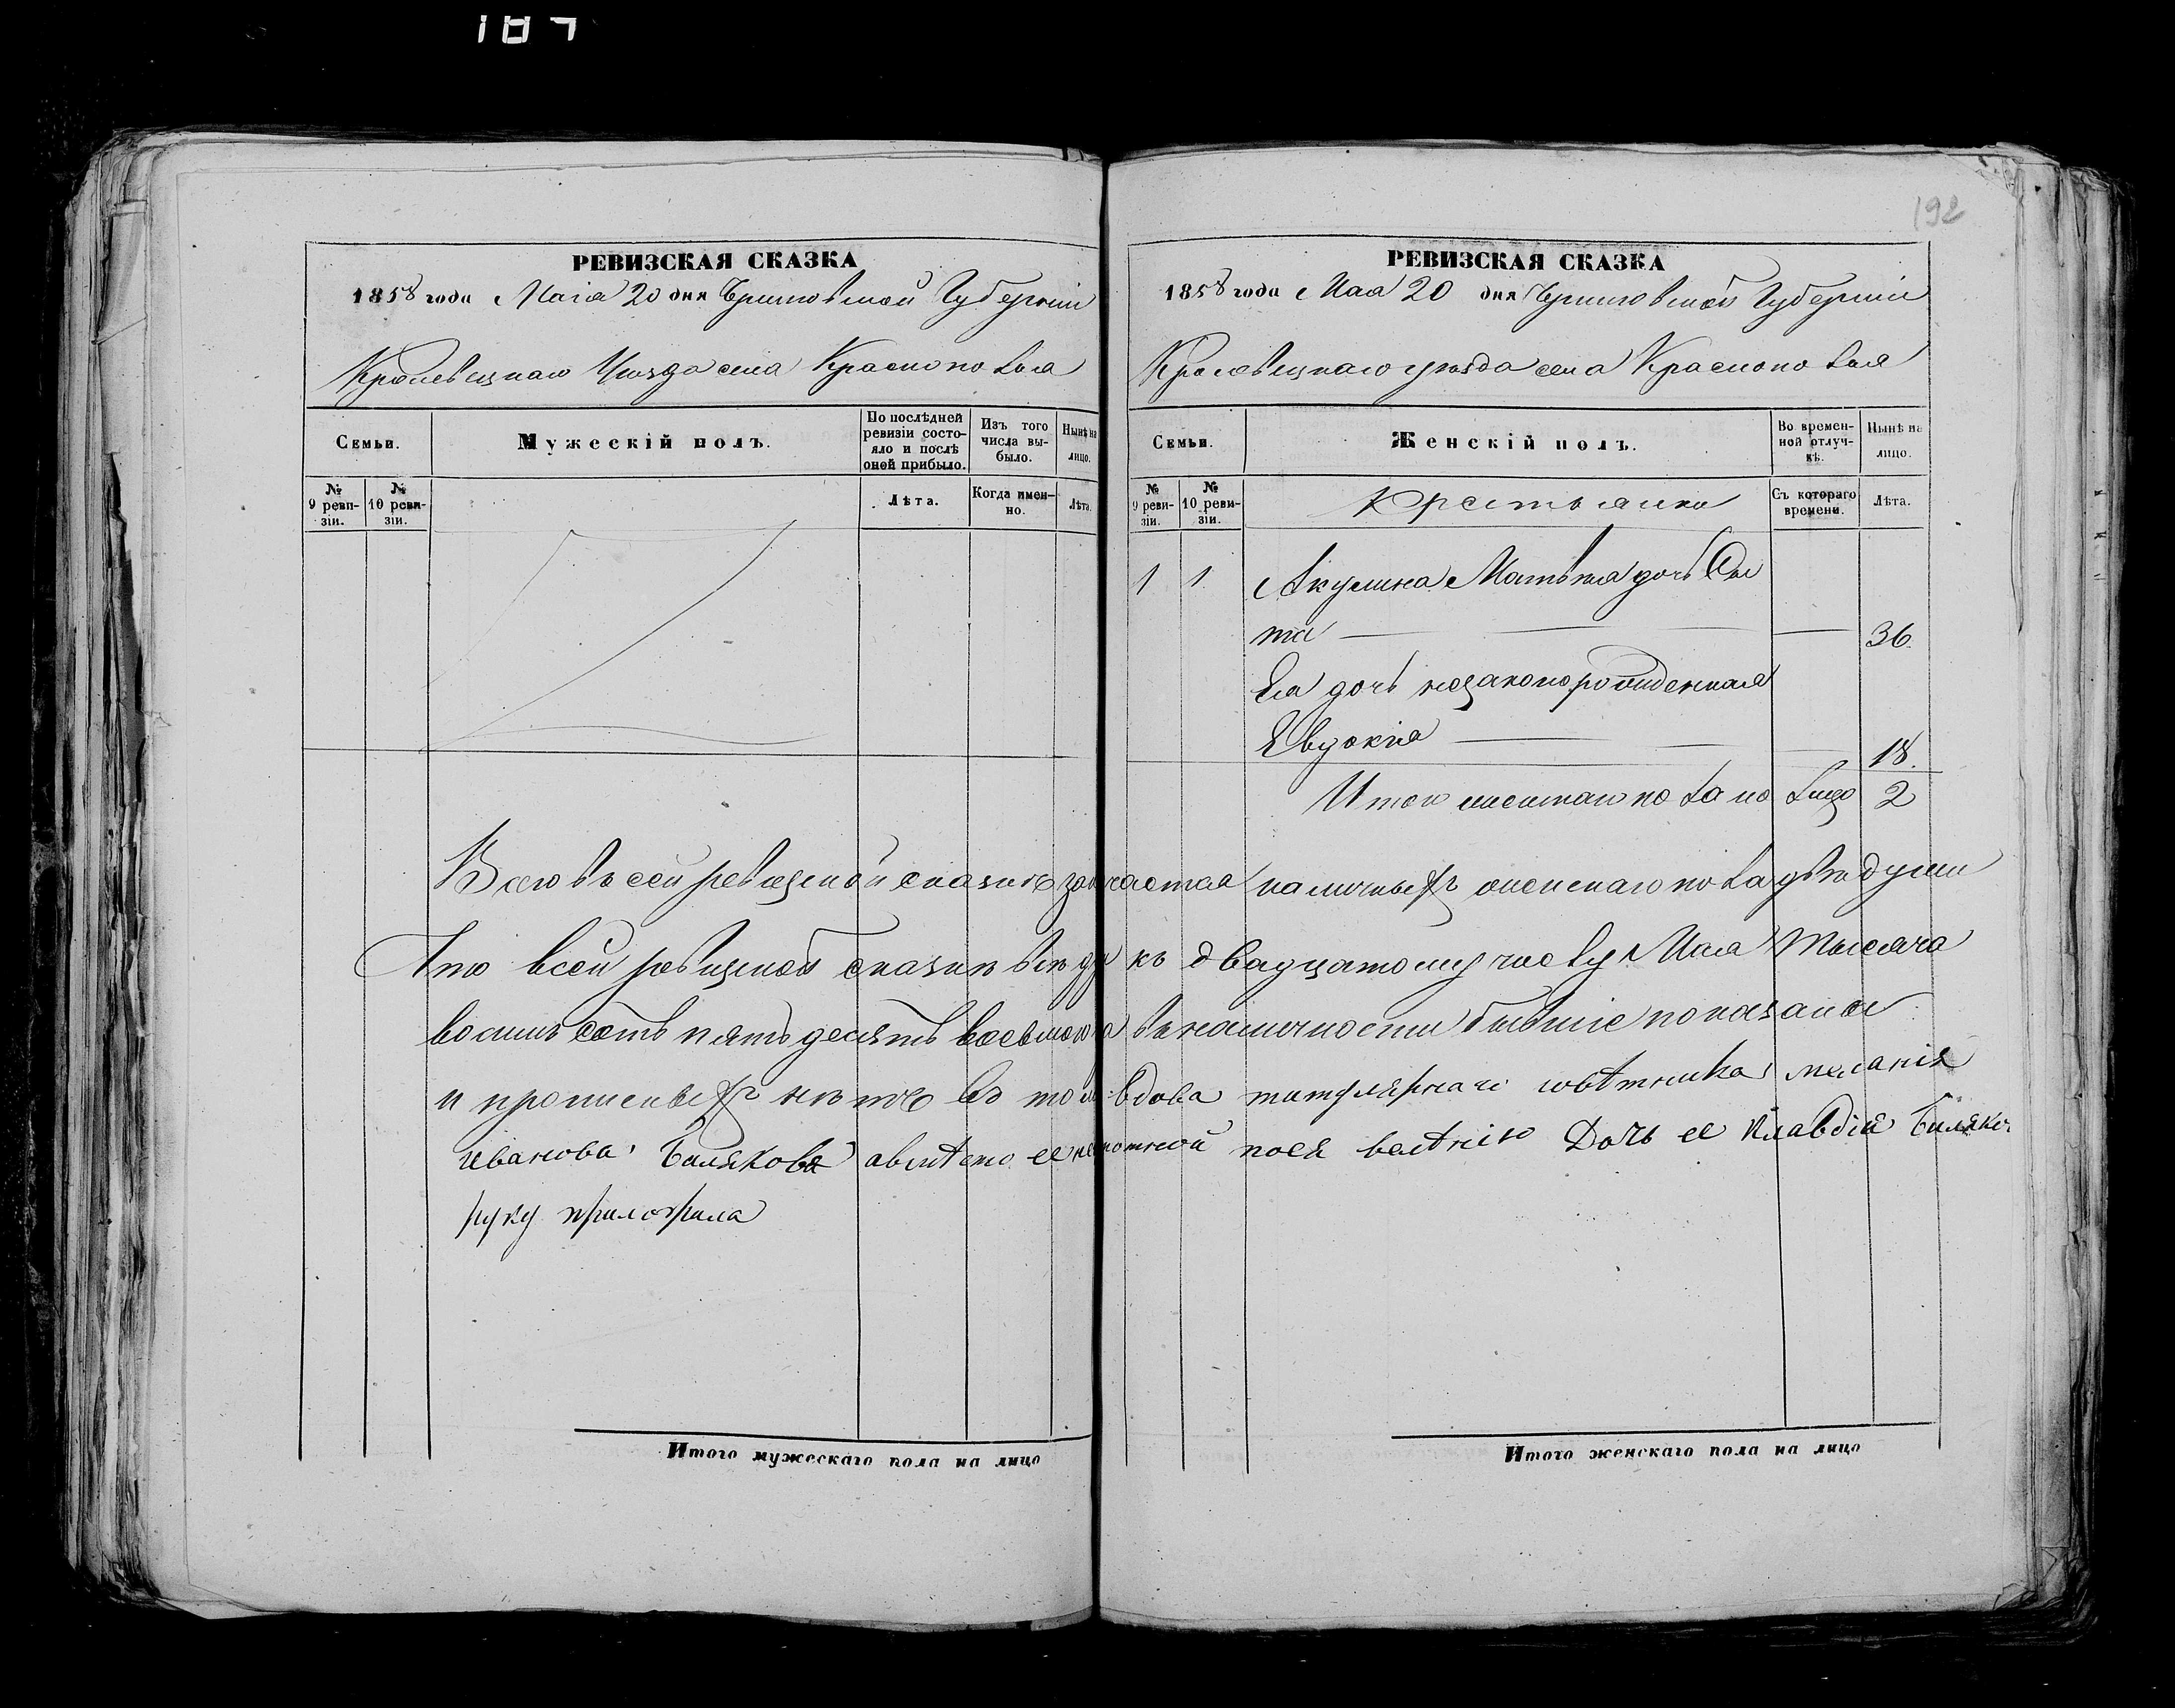 187
192
РЕВИЗСКАЯ СКАЗКА
1858 года Маія 20 дня Черниговской Губерніи
Кролевецкаго Уезда села Краснополья
Семьи.
Мужескій полъ.
По послѣдней ревизіи состояло и послѣ оной прибыло.
Изъ того числа выбыло.
Нынѣ на лицо.
№ 9 ревизіи.
№ 10 ревизіи.
Лѣта.
Когда именно.
Лѣта.
РЕВИЗСКАЯ СКАЗКА
1858 года Мая 20 дня Черниговской Губерніи
Кролевецкаго уезда села Краснополья
Семьи.
Женскій полъ.
Во временной отлучкѣ.
Нынѣ на лицо.
№ 9 ревизіи.
№ 10 ревизіи.
Крестьянка
Съ котораго времени.
Лѣта.
1 1 Акулина Матвѣева дочь
та 36.
Ея дочь незаконорожденная
Евдокія 18.
Итого женскаго пола на лицо 2
Всего въ сей ревизской сказкѣ наличныхъ женскаго пола двѣ души
Что в сей ревизской сказкѣ всѣ къ двадцатому числу Мая тысяча
восимъ сотъ пятьдесятъ восьмого въ наличности бывшіе показаны
и прописныхъ нѣтъ в том вдова титулярнаго совѣтника меланія
иванова Билякова авмѣсто ее неграмотной поея велѣнію Дочь ее Клавдія
руку приложила
Итого мужескаго пола на лицо
Итого женскаго пола на лицо